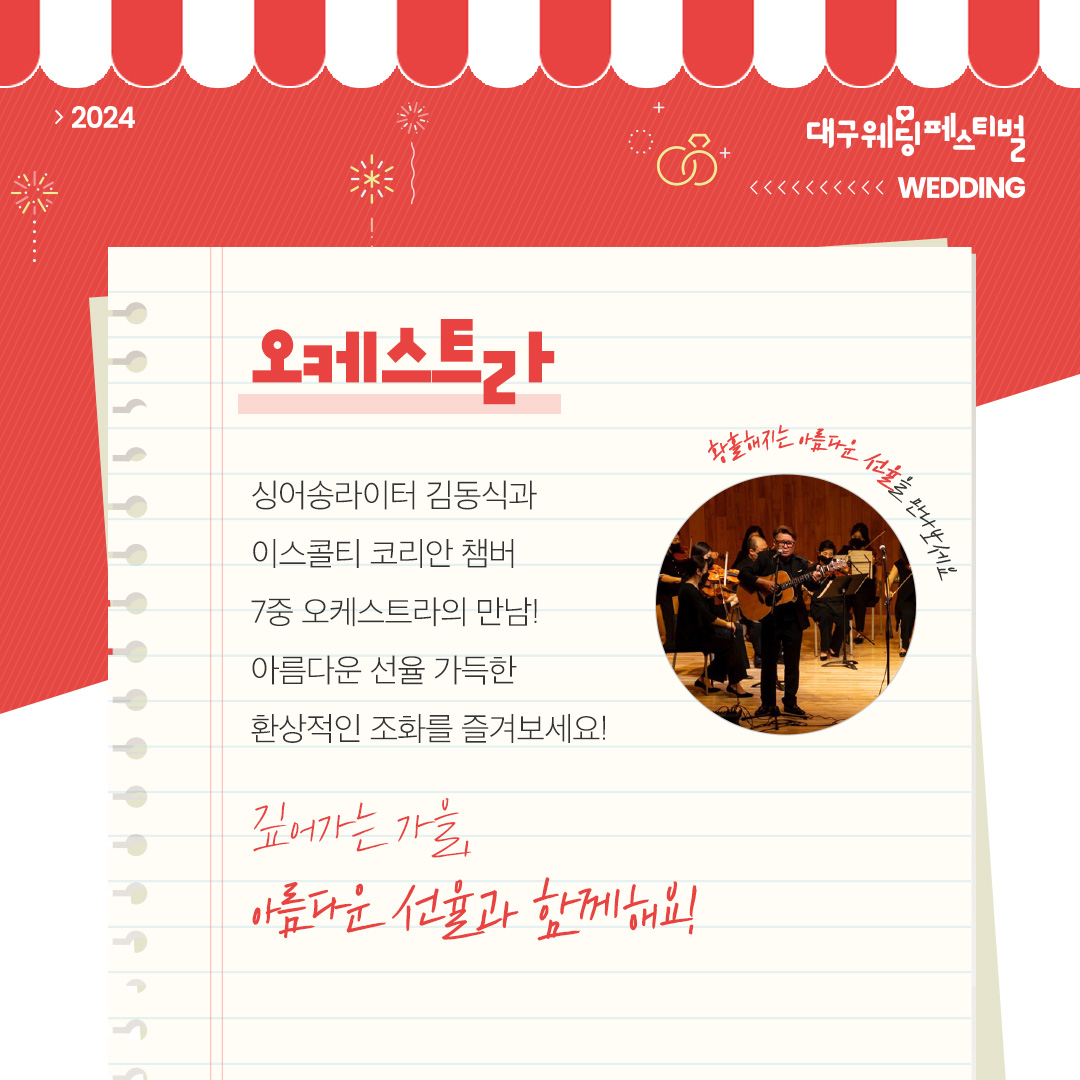 2024
대구웨딩페스티벌
WEDDING
오케스트라
황홀해지는 아름다운 선율을 만나보세요
싱어송라이터 김동식과
이스콜티 코리안 챔버
7중 오케스트라의 만남!
아름다운 선율 가득한
환상적인 조화를 즐겨보세요!
깊어가는 가을,
아름다운 선율과 함께해요!